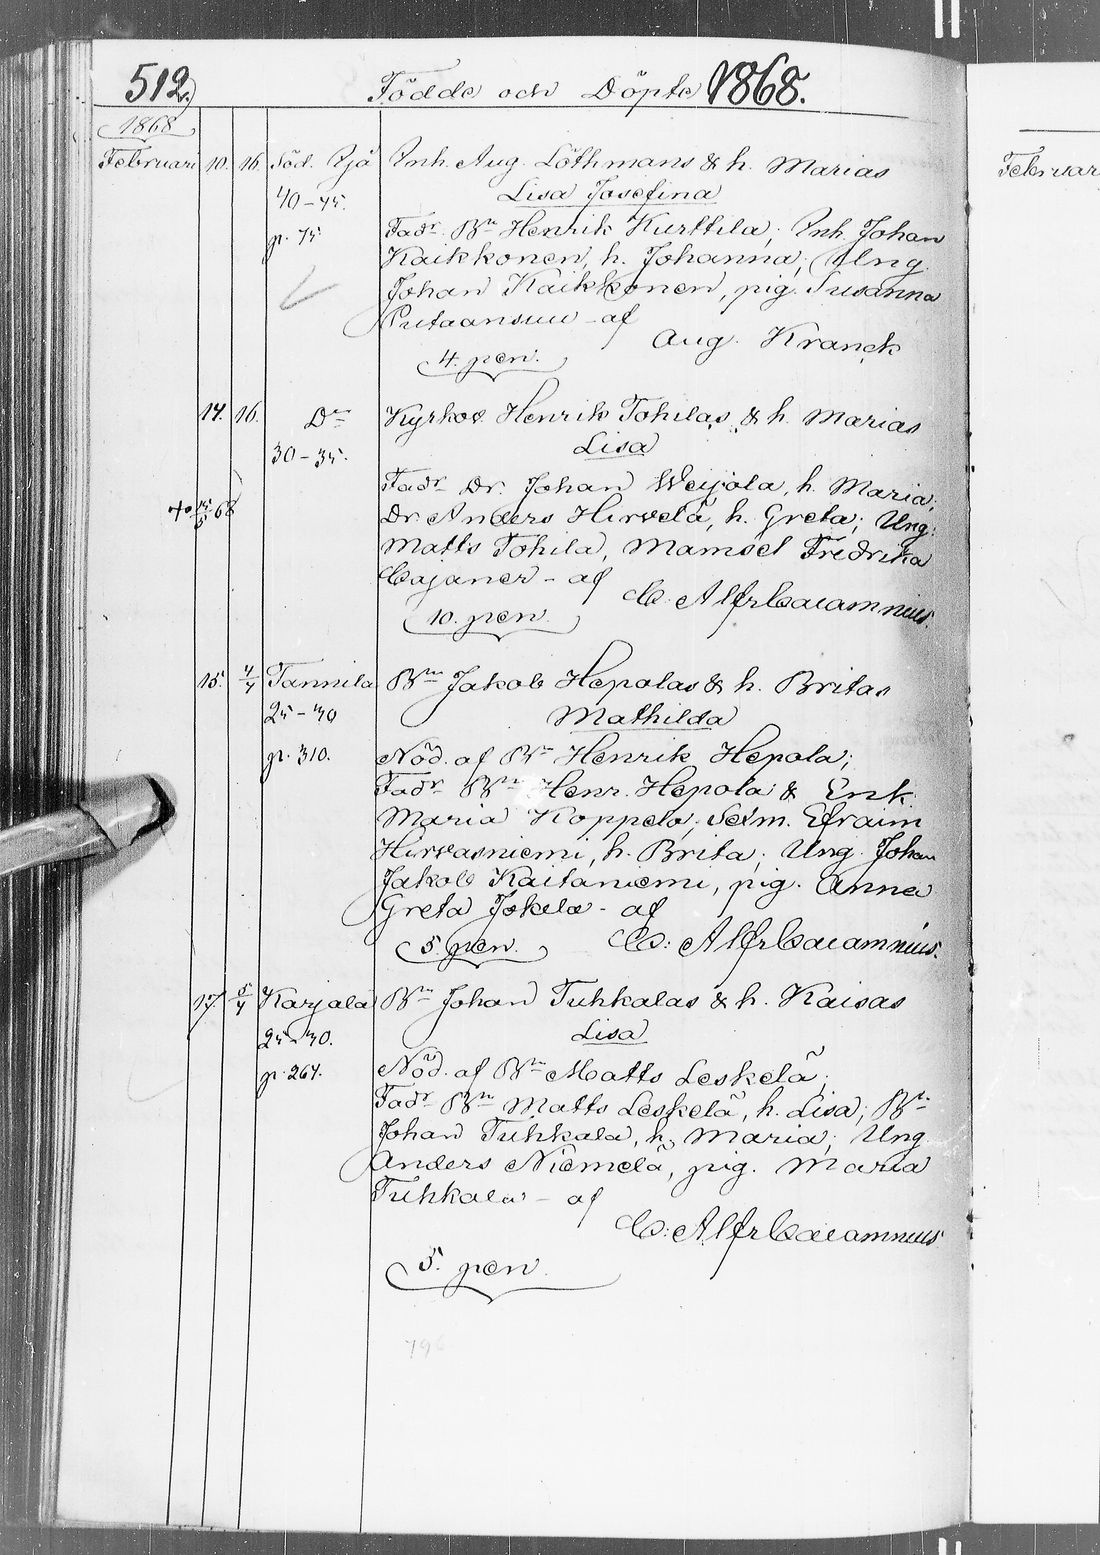 512. Födde och Döpte 1868.
1868
Februari 10. 16. Söd. Yjä Inh. Aug. Löthmans & h. Marias
40-45. Lisa Josefina
p. 75 Fadr Bn Henrik Kurttila; Inh. Johan
Kaikkonen, h. Johanna; Ung.
Johan Kaikkonen, pig. Susanna
Putaansuu - af
Aug. Kranck
4. pen.
14. 16. Do Kyrkov. Henrik Tohilas & h. Marias
30-35. Lisa
Fadr Dr. Johan Weijola, h. Maria;
+ 15/5 68 Dr. Anders Hirvelä, h. Greta; Ung.
Matts Tohila, Mamsel Fredrika
Cajaner - af
C. Alfr Calamnius.
10. pen.
15. 4/4 Tannila Bn Jakob Hepolas & h. Britas
25-30 Mathilda
p. 310. Nöd. af Bn Henrik Hepola;
Fadr Bn Henr. Hepola & Enk.
Maria Koppelo; Sexm. Efraim
Hirvasniemi, h. Brita; Ung. Johan
Jakob Kaitaniemi, pig. Anna
Greta Jokela - af
5. pen. C. Alfr Calamnius.
17. 5/4 Karjala Bn Johan Tuhkalas & h. Kaisas
25-30. Lisa
p. 267. Nöd. af Bn Matts Leskelä;
Fadr Bn Matts Leskelä, h. Lisa; Bn
Johan Tuhkala, h. Maria; Ung.
Anders Niemelä, pig. Maria
Tuhkala - af
C. Alfr Calamnius
5. pen.
796
Februari